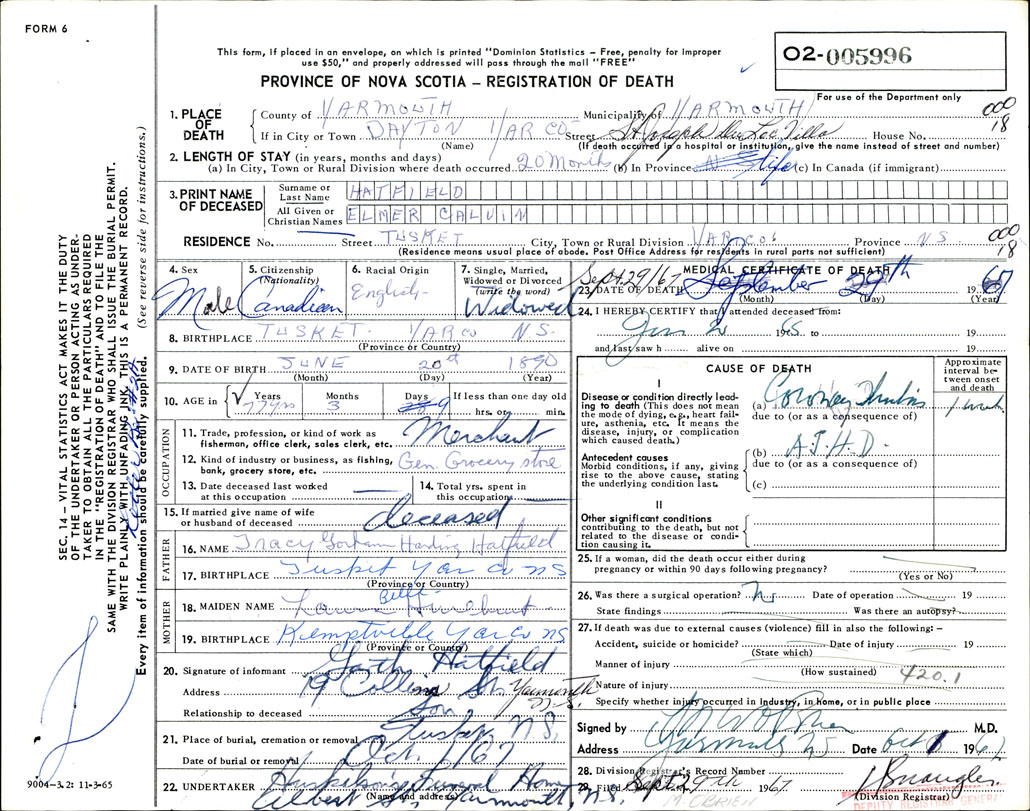 FORM 6
This form, if placed in an envelope, on which is printed "Dominion Statistics – Free, penalty for improper
use $50," and properly addressed will pass through the mail "FREE"
PROVINCE OF NOVA SCOTIA – REGISTRATION OF DEATH
02-005996
For use of the Department only
000
18
1. PLACE OF DEATH
County of YARMOUTH Municipality of YARMOUTH
If in City or Town DAYTON YAR CO Street St Joseph Du Lac Villa House No.
(Name) (If death occurred in a hospital or institution, give the name instead of street and number)
2. LENGTH OF STAY (in years, months and days)
(a) In City, Town or Rural Division where death occurred 20 Months (b) In Province Life (c) In Canada (if immigrant)
3. PRINT NAME OF DECEASED
Surname or Last Name HATFIELD
All Given or Christian Names ELMER CALVIN
RESIDENCE No. Street TUSKET City, Town or Rural Division YAR CO. Province NS
(Residence means usual place of abode. Post Office Address for residents in rural parts not sufficient)
000
18
4. Sex Male
5. Citizenship (Nationality) Canadian
6. Racial Origin English
7. Single, Married, Widowed or Divorced (write the word) Widowed
8. BIRTHPLACE TUSKET YAR CO N.S.
(Province or Country)
9. DATE OF BIRTH JUNE 20st 1890
(Month) (Day) (Year)
10. AGE in Years 77 yrs Months 3 Days 9 If less than one day old
hrs. or min.
OCCUPATION
11. Trade, profession, or kind of work as
fisherman, office clerk, sales clerk, etc. Merchant
12. Kind of industry or business, as fishing,
bank, grocery store, etc. Gen. Grocery store
13. Date deceased last worked
at this occupation
14. Total yrs. spent in
this occupation
15. If married give name of wife
or husband of deceased deceased
FATHER
16. NAME Tracy Gorham Harding Hatfield
17. BIRTHPLACE Tusket Yar Co NS
(Province or Country)
MOTHER
18. MAIDEN NAME Laura Belle Hurlburt
19. BIRTHPLACE Kemptville Yar Co NS
(Province or Country)
20. Signature of informant Garth Hatfield
Address 19 Collins St. Yarmouth N.S.
Relationship to deceased Son
21. Place of burial, cremation or removal Tusket N.S.
Date of burial or removal Oct. 1/67
22. UNDERTAKER Funeral Home
(Name and address) Albert St. Yarmouth, N.S.
MEDICAL CERTIFICATE OF DEATH
Sept. 29/67
23. DATE OF DEATH September 29th 1967
(Month) (Day) (Year)
24. I HEREBY CERTIFY that I attended deceased from:
Jan 2 1965 to 19
and last saw h alive on 19
CAUSE OF DEATH
Approximate interval between onset and death
I
Disease or condition directly leading to death (This does not mean the mode of dying, e.g., heart failure, asthenia, etc. It means the disease, injury, or complication which caused death.)
(a) Coronary Thrombosis 1 week
due to (or as a consequence of)
Antecedent causes
Morbid conditions, if any, giving rise to the above cause, stating the underlying condition last.
(b) A.S.H.D.
due to (or as a consequence of)
(c)
II
Other significant conditions
contributing to the death, but not related to the disease or condition causing it.
25. If a woman, did the death occur either during
pregnancy or within 90 days following pregnancy?
(Yes or No)
26. Was there a surgical operation? No Date of operation 19
State findings Was there an autopsy?
27. If death was due to external causes (violence) fill in also the following: –
Accident, suicide or homicide? Date of injury 19
(State which)
Manner of injury
(How sustained) 420.1
Nature of injury
Specify whether injury occurred in Industry, in home, or in public place
Signed by M.D.
Address Yarmouth NS Date Oct 1 196
28. Division Registrar's Record Number
29. Filed Sept. 29th 1967
(Division Registrar)
DEPUTY REGISTRAR GENERAL
M. O'BRIEN
SEC. 14 – VITAL STATISTICS ACT MAKES IT THE DUTY
OF THE UNDERTAKER OR PERSON ACTING AS UNDERTAKER TO OBTAIN ALL THE PARTICULARS REQUIRED
IN THE "REGISTRATION OF DEATH" AND TO FILE THE
SAME WITH THE DIVISION REGISTRAR WHO SHALL ISSUE THE BURIAL PERMIT.
WRITE PLAINLY WITH UNFADING INK. THIS IS A PERMANENT RECORD.
Every item of information should be carefully supplied. (See reverse side for instructions.)
9004-3.2: 11-3-65